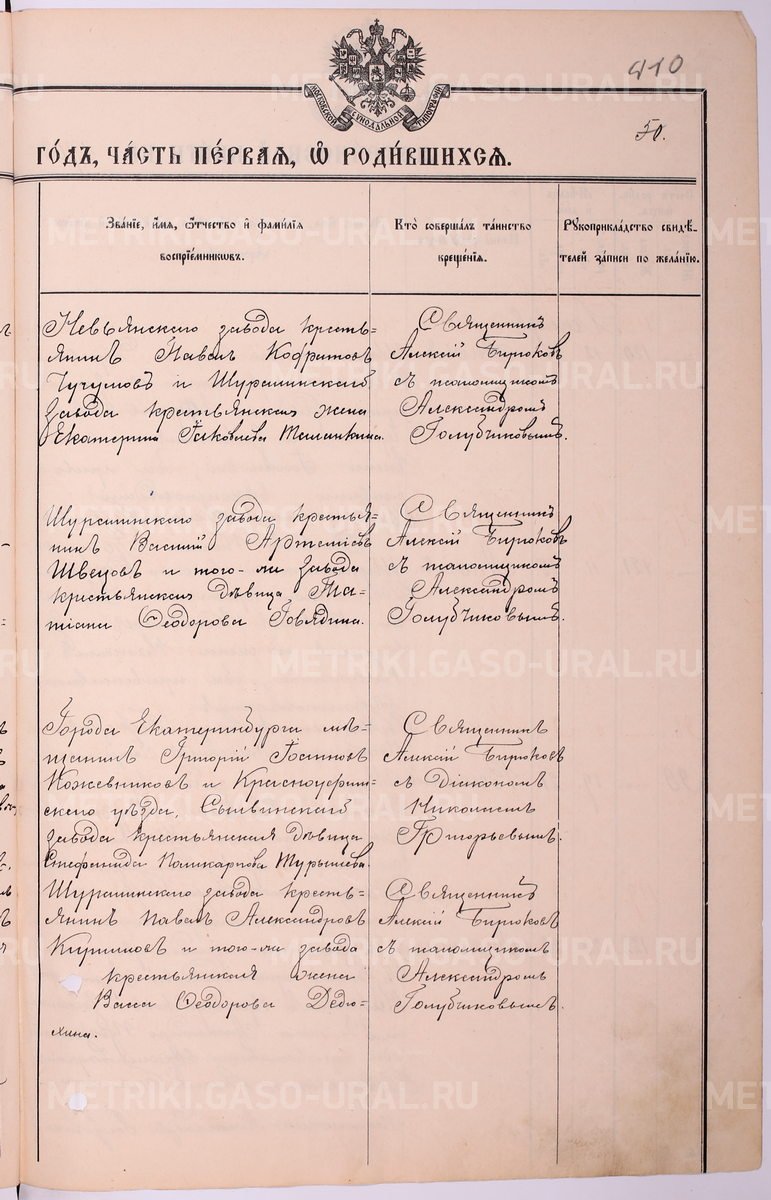 410
50.
МОСКОВСКОЙ СѴНОДАЛЬНОЙ ТИПОГРАФІИ
ГОДЪ, ЧАСТЬ ПЕРВАЯ, Ѡ РОДИВШИХСЯ.
Званіе, имя, отчество и фамилія
воспріемниковъ.
Кто совершалъ таинство
крещенія.
Рукоприкладство свидѣ-
телей записи по желанію.
Невьянскаго завода кресть-
янинъ Павелъ
и Шуралинскаго
завода крестьянская жена
Екатерина Іаковлева
Священникъ
Алексій Бирюковъ
съ псаломщикомъ
Александромъ
Голубчиковымъ.
Шуралинскаго завода крестья-
нинъ Василій Артеміевъ
Швецовъ и того-же завода
крестьянская дѣвица Та-
тіана Ѳеодорова Говядина.
Священникъ
Алексій Бирюковъ
съ псаломщикомъ
Александромъ
Голубчиковымъ.
Города Екатеринбурга мѣ-
щанинъ Григорій Іоанновъ
Кожевниковъ и Красноуфим-
скаго уѣзда, Сылвинскаго
завода крестьянская дѣвица
Стефанида
Священникъ
Алексій Бирюковъ
съ Діакономъ
Николаемъ
Григорьевымъ.
Шуралинскаго завода кресть-
янинъ Павелъ Александровъ
Кирилловъ и того-же завода
крестьянская жена
Васса Ѳеодорова Дедю-
хина.
Священникъ
Алексій Бирюковъ
съ псаломщикомъ
Александромъ
Голубчиковымъ.
METRIKI.GASO-URAL.RU